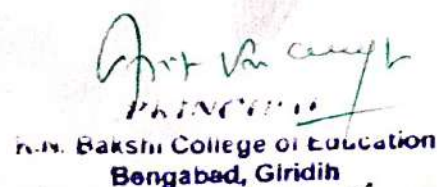 PRINCIPAL
R.N. Bakshi College of Education
Bengabad, Giridih